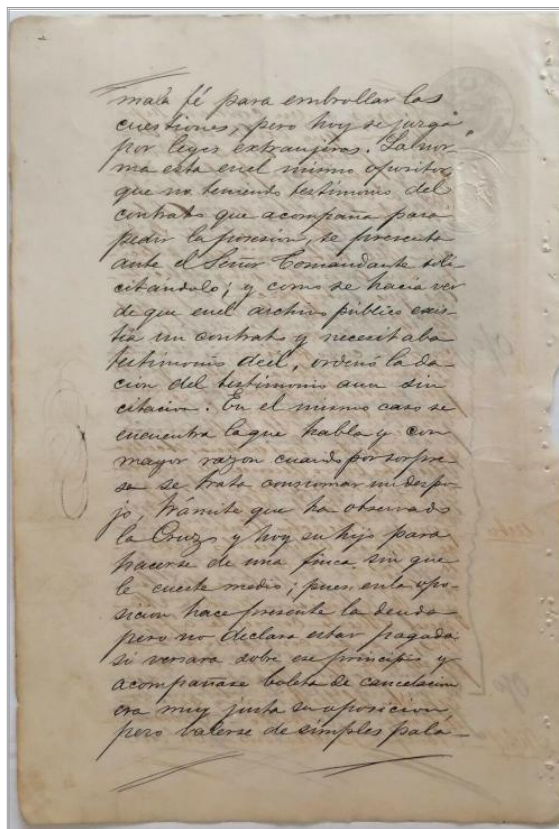 mala fé para embrollar las
cuestiones, pero hoy se juzga
por leyes extranjeras. La nor
ma esta en el mismo opositor,
que no teniendo testimonio del
contrato que acompaña para
pedir la posesion, se presenta
ante el Señor Comandante soli
citándolo; y como se hacía ver
de que en el archivo público exis-
tía un contrato y necesitaba
testimonio de él, ordenó la da
cion del testimonio aun sin
citacion. En el mismo caso se
encuentra la que habla y con
mayor razon cuando por sorpre-
sa se trata consumar un despo-
jo, trámite que ha observado
la Cruz y hoy su hijo para
hacerse de una finca sin que
le cueste medio; pues en la opo-
sicion hace presente la deuda
pero no declara estar pagada
si versara sobre ese principio y
acompañase boleta de cancelacion
era muy justa su oposicion
pero valerse de simples pala-